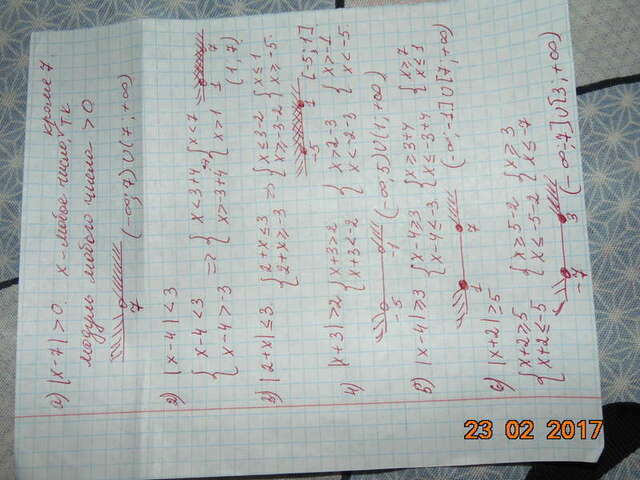 а) |x-7|>0. x - любое число, кроме 7.
т.к.
модуль любого числа >0
7 (-∞;7)∪(7;+∞)
2) |x-4|<3
{ x-4<3
x-4>-3 ⇒ { x<3+4
x>-3+4 ⇒ { x<7
x>1
1 7
(1,7)
3) |2+x|≤3. { 2+x≤3
2+x≥-3 ⇒ { x≤3-2
x≥-3-2 { x≤1
x≥-5.
-5 1 [-5;1]
4) |x+3|>2 { x+3>2
x+3<-2 { x>2-3
x<-2-3 { x>-1
x<-5.
-5 -1 (-∞;5)∪(1;+∞)
5) |x-4|≥3 { x-4≥3
x-4≤-3. { x≥3+4
x≤-3+4 { x≥7
x≤1
1 7 (-∞;-1]∪[7;+∞)
6) |x+2|≥5
{ x+2≥5
x+2≤-5 { x≥5-2
x≤-5-2 { x≥3
x≤-7
-7 3 (-∞;7]∪[3;+∞)
23 02 2017